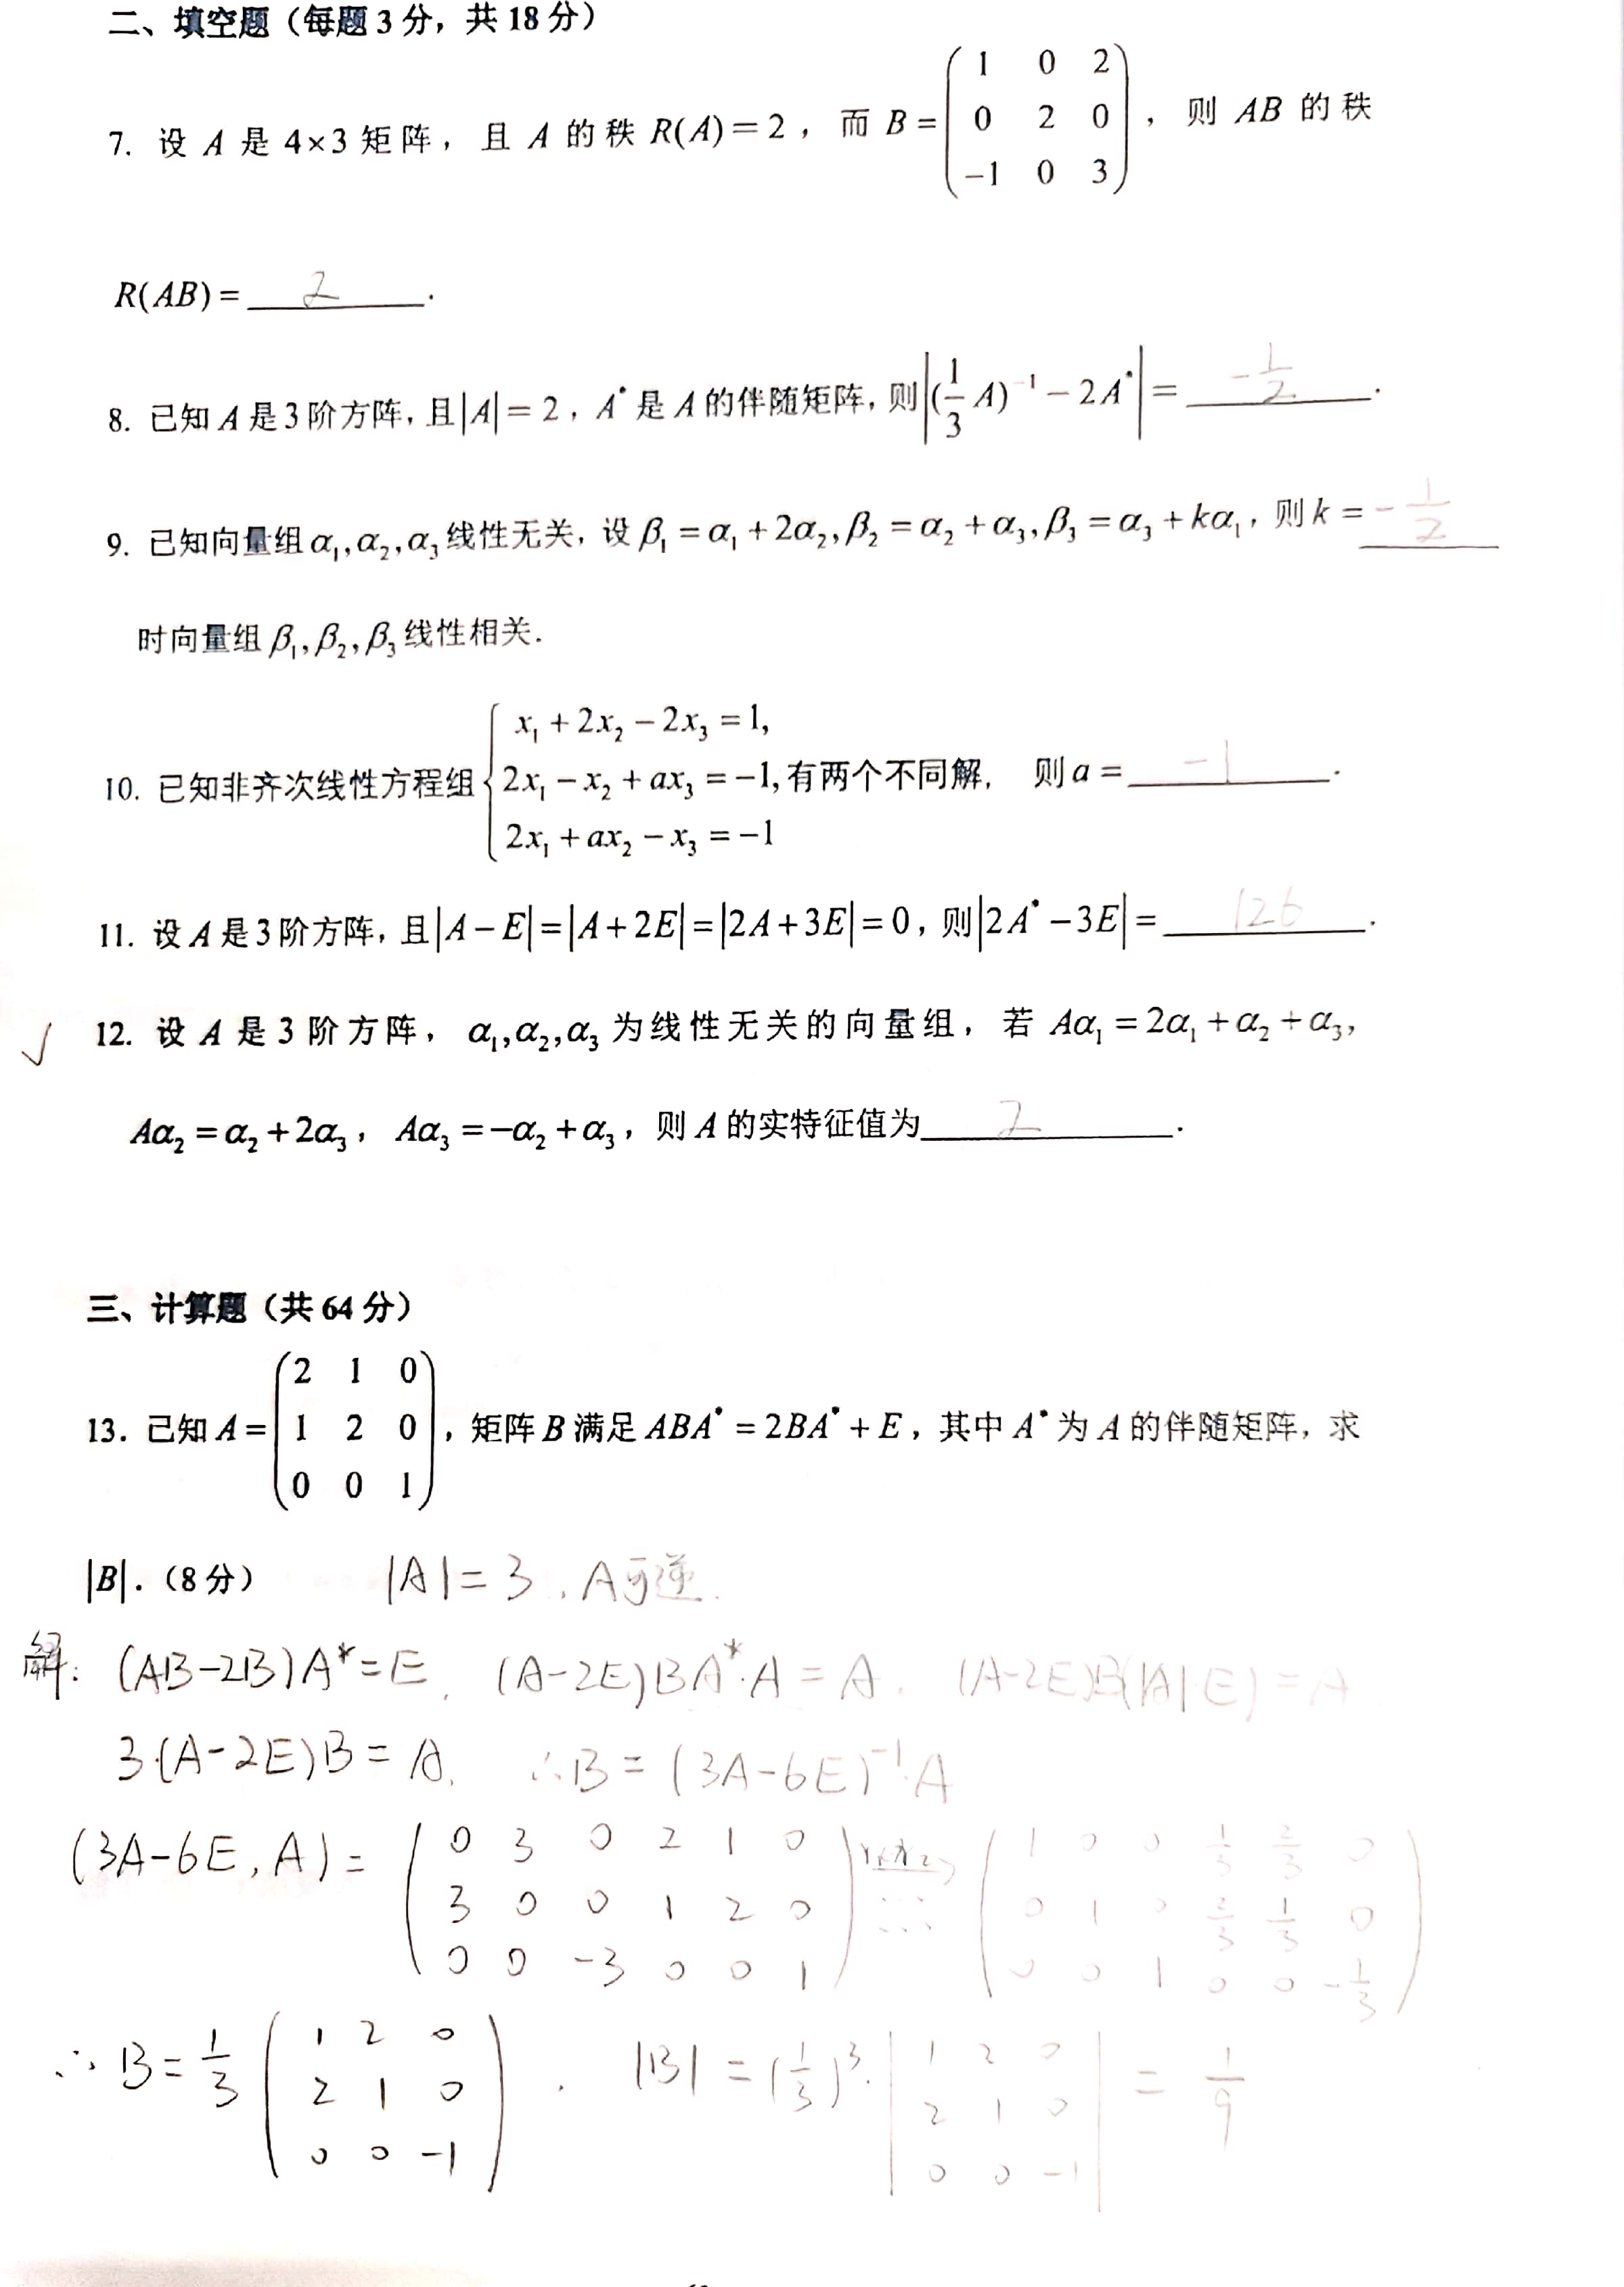 二、填空题（每题 3 分，共 18 分）
7. 设 A 是 4×3 矩阵，且 A 的秩 R(A)=2，而 B=(1 0 2; 0 2 0; −1 0 3)，则 AB 的秩
R(AB)= 2 .
8. 已知 A 是 3 阶方阵，且|A|=2，A* 是 A 的伴随矩阵，则|(1/3 A)⁻¹−2A*|= −1/2 .
9. 已知向量组 α₁,α₂,α₃ 线性无关，设 β₁=α₁+2α₂,β₂=α₂+α₃,β₃=α₃+kα₁，则 k= −1/2
时向量组 β₁,β₂,β₃ 线性相关.
10. 已知非齐次线性方程组{x₁+2x₂−2x₃=1, 2x₁−x₂+ax₃=−1, 2x₁+ax₂−x₃=−1 有两个不同解， 则 a= −1 .
11. 设 A 是 3 阶方阵，且|A−E|=|A+2E|=|2A+3E|=0，则|2A*−3E|= 126 .
√ 12. 设 A 是 3 阶方阵，α₁,α₂,α₃ 为线性无关的向量组，若 Aα₁=2α₁+α₂+α₃,
Aα₂=α₂+2α₃，Aα₃=−α₂+α₃，则 A 的实特征值为 2 .
三、计算题（共 64 分）
13. 已知 A=(2 1 0; 1 2 0; 0 0 1)，矩阵 B 满足 ABA*=2BA*+E，其中 A* 为 A 的伴随矩阵，求
|B|.（8 分） |A|=3 , A可逆.
解: (AB-2B)A*=E, (A-2E)BA*·A=A. (A-2E)B(|A|E)=A
3·(A-2E)B=A. ∴B=(3A-6E)⁻¹·A
(3A-6E, A)=(0 3 0 2 1 0; 3 0 0 1 2 0; 0 0 -3 0 0 1) r₁↔r₂ (1 0 0 1/3 2/3 0; 0 1 0 2/3 1/3 0; 0 0 1 0 0 -1/3)
∴B=1/3(1 2 0; 2 1 0; 0 0 -1). |B|=(1/3)³·|1 2 0; 2 1 0; 0 0 -1|=1/9